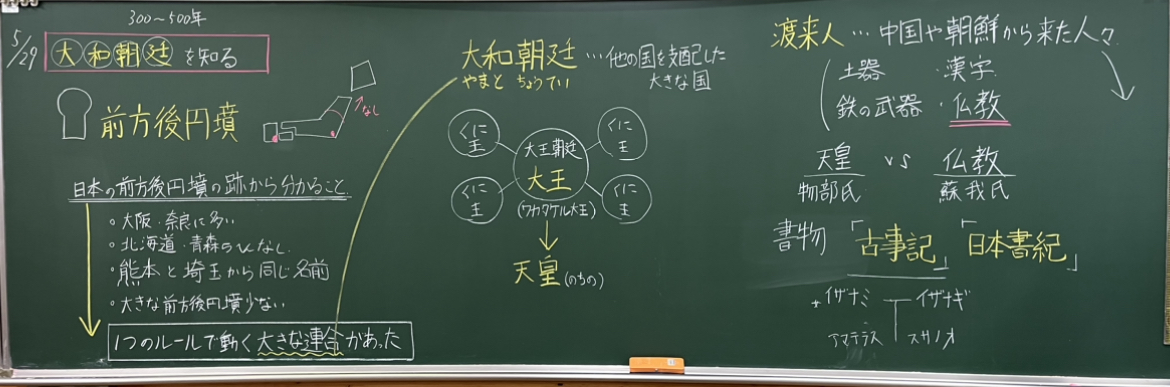 300～500年
5/29
大和朝廷を知る
前方後円墳
なし
日本の前方後円墳の跡から分かること
・大阪・奈良に多い
・熊本と埼玉から同じ名前
・大きな前方後円墳少ない
1つのルールで動く大きな連合があった
大和朝廷…他の国を支配した
大きな国
やまと ちょうてい
くに
王
くに
王
大王朝廷
大王
くに
王
くに
王
(ワカタケル大王)
天皇(のちの)
渡来人…中国や朝鮮から来た人々
土器 ・漢字
鉄の武器・仏教
天皇 vs 仏教
物部氏 蘇我氏
書物「古事記」「日本書紀」
イザナミ イザナギ
アマテラス スサノオ